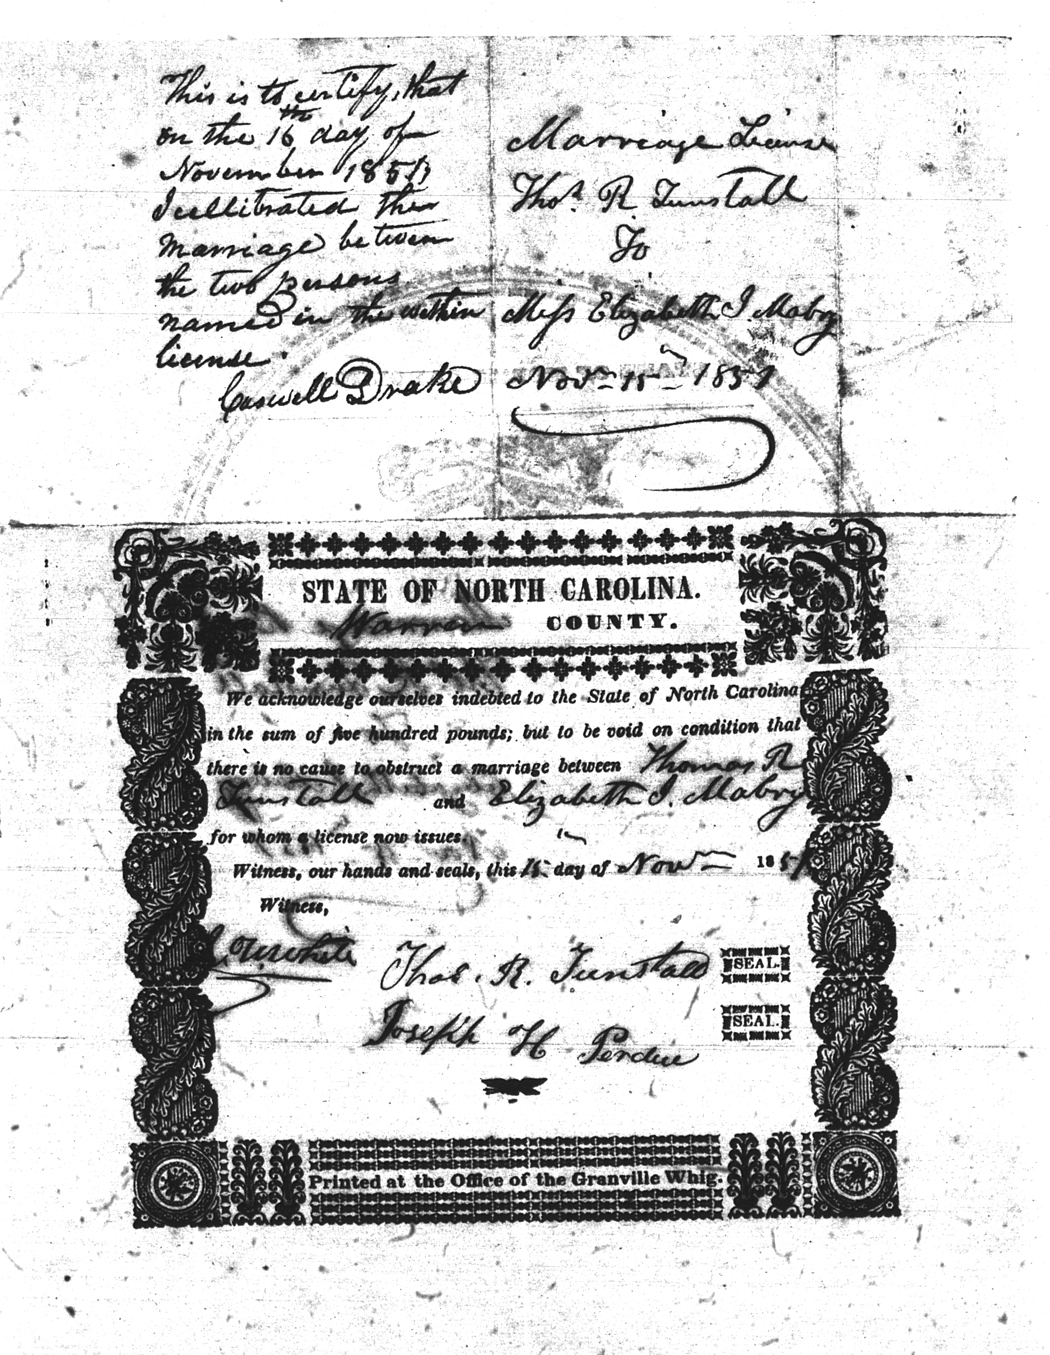 This is to certify, that
on the 16th day of
November 1851
I cellibrated the
marriage between
the two persons
named in the within
license.
Caswell Drake
Marriage License
Thos. R. Tunstall
To
Miss Elizabeth I Mabry
Novr 15th 1851
STATE OF NORTH CAROLINA.
Warren COUNTY.
We acknowledge ourselves indebted to the State of North Carolina
in the sum of five hundred pounds; but to be void on condition that
there is no cause to obstruct a marriage between Thomas R
Tunstall and Elizabeth I. Mabry
for whom a license now issues.
Witness, our hands and seals, this 15th day of Novr 1851
Witness,
White
Thos. R. Tunstall SEAL.
Joseph H Perdue SEAL.
Printed at the Office of the Granville Whig.